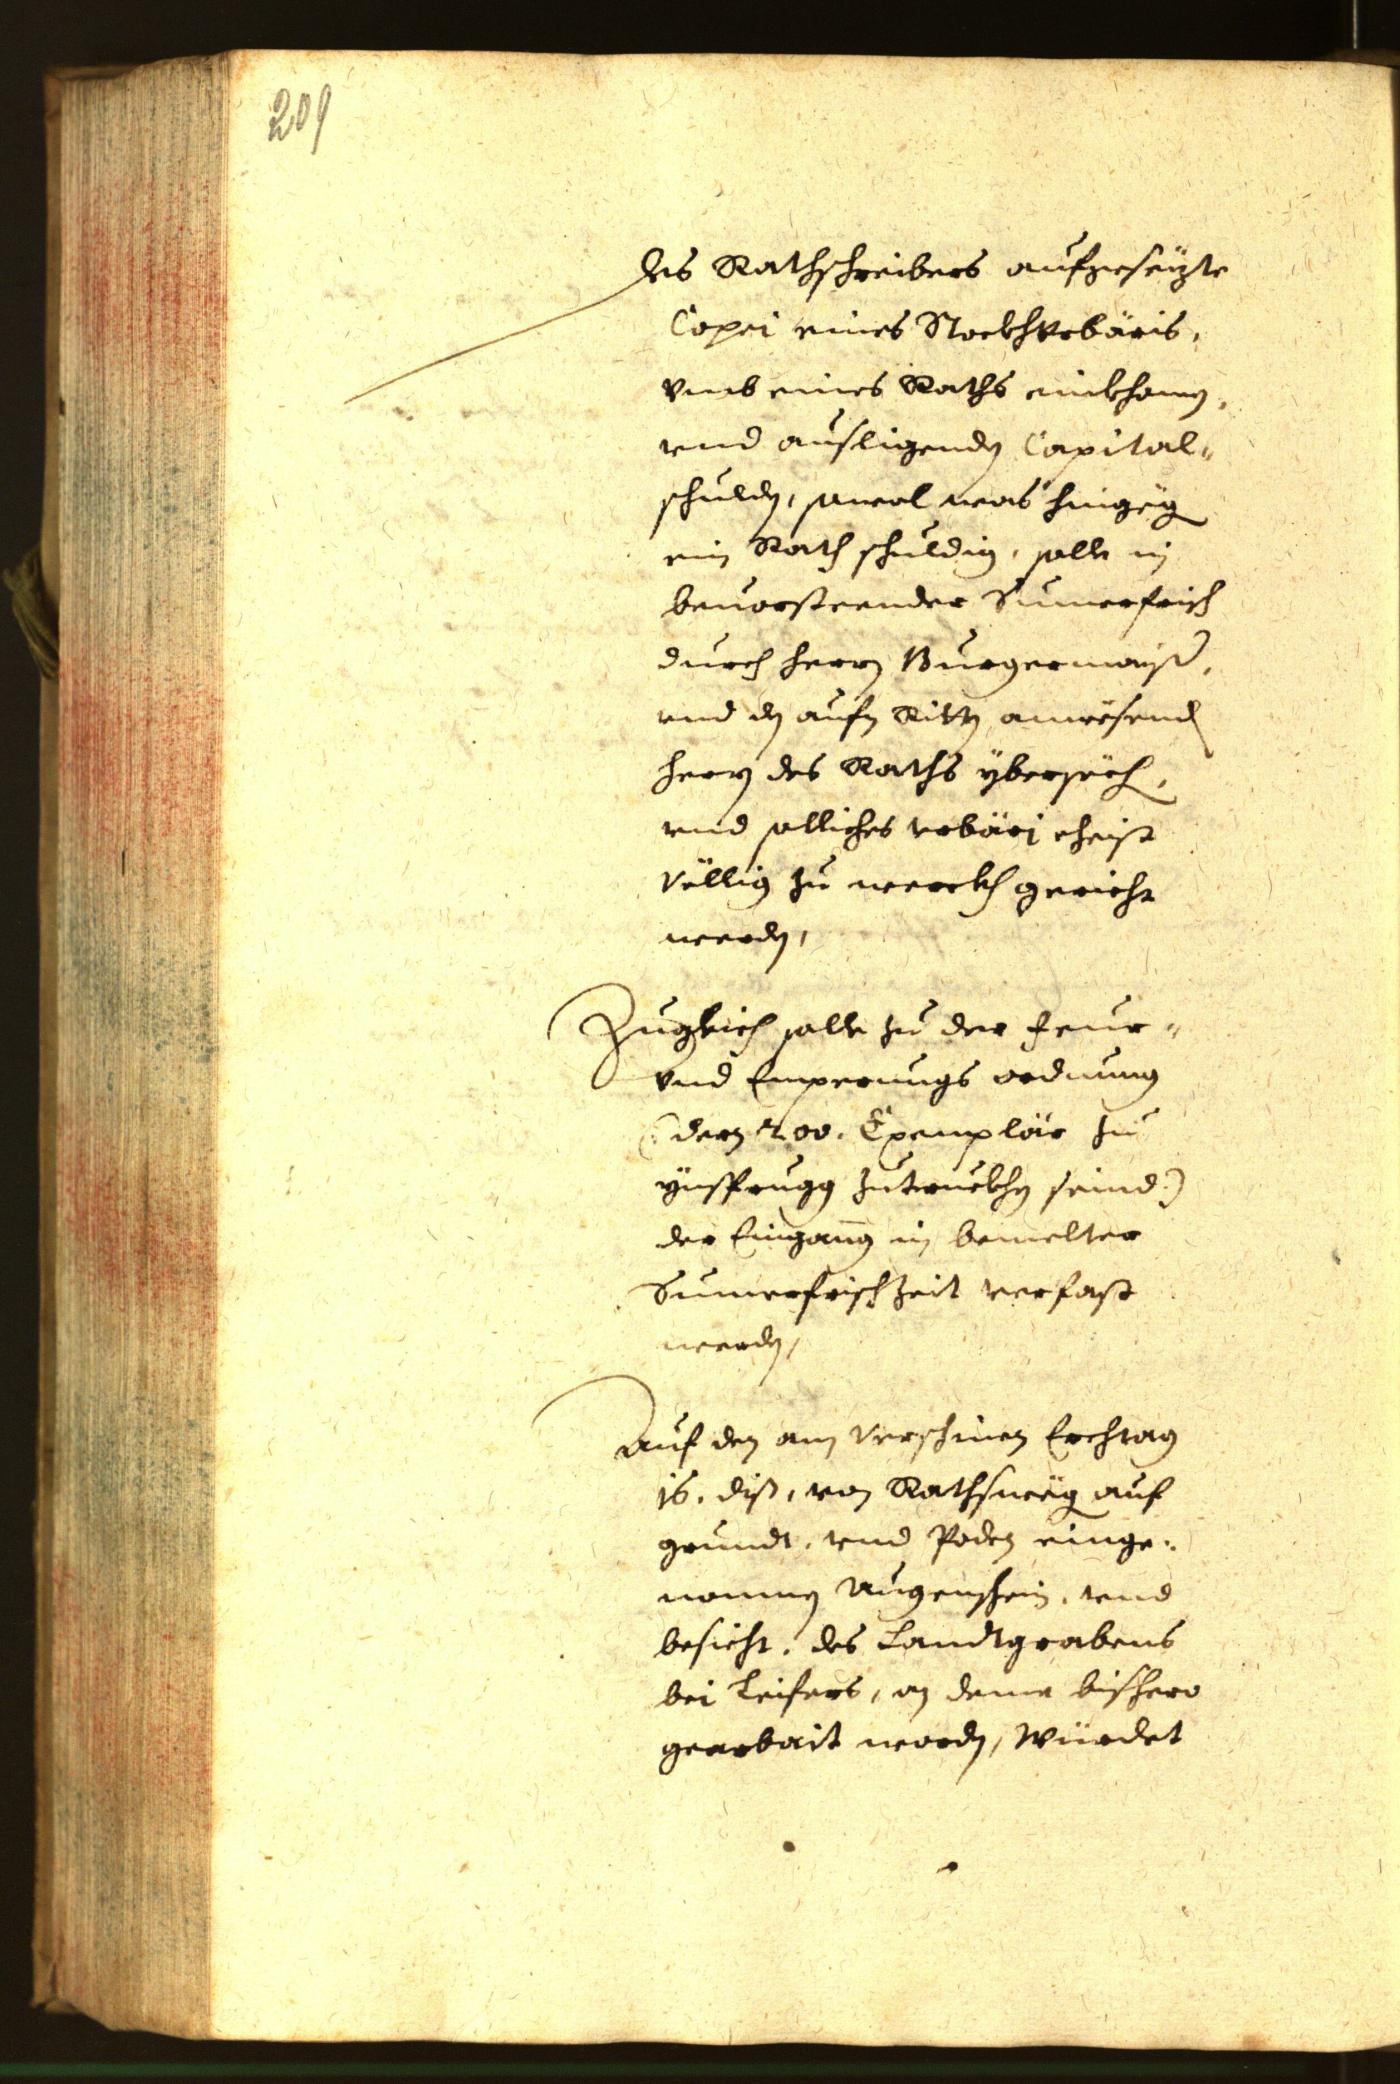 209
des Rathschreibers aufgesëzte
Copei eines Stockhvrbäris,
vmb eines Raths einkhomen,
vnd ausligenden Capital-
schulden, sowol was hingëgen
ein Rath schuldig, solle in
beuorsteender Sumerfrisch
durch herrn Burgermaister,
vnd den aufn Ritten anwësenden
herrn des Raths ÿbersëchen,
vnd solliches vrbäri eheist
völlig zu werckh gericht
werden,
Zugleich solle zu der feur-
vnd Emperungs ordnung
(: dern 200. Exemplär zu
ÿnsprugg zutruckhen seind:)
der Eingang in bemelter
Sumerfrischzeit verfast
werden,
Auf den am verschinen Erchtag
16. diß, von Rathswëgen auf
grundt, vnd Poden einge-
nommen Augenschein, vnd
besicht, des Landtgrabens
bei Leifers, an deme bißhero
gearbait worden, würdet